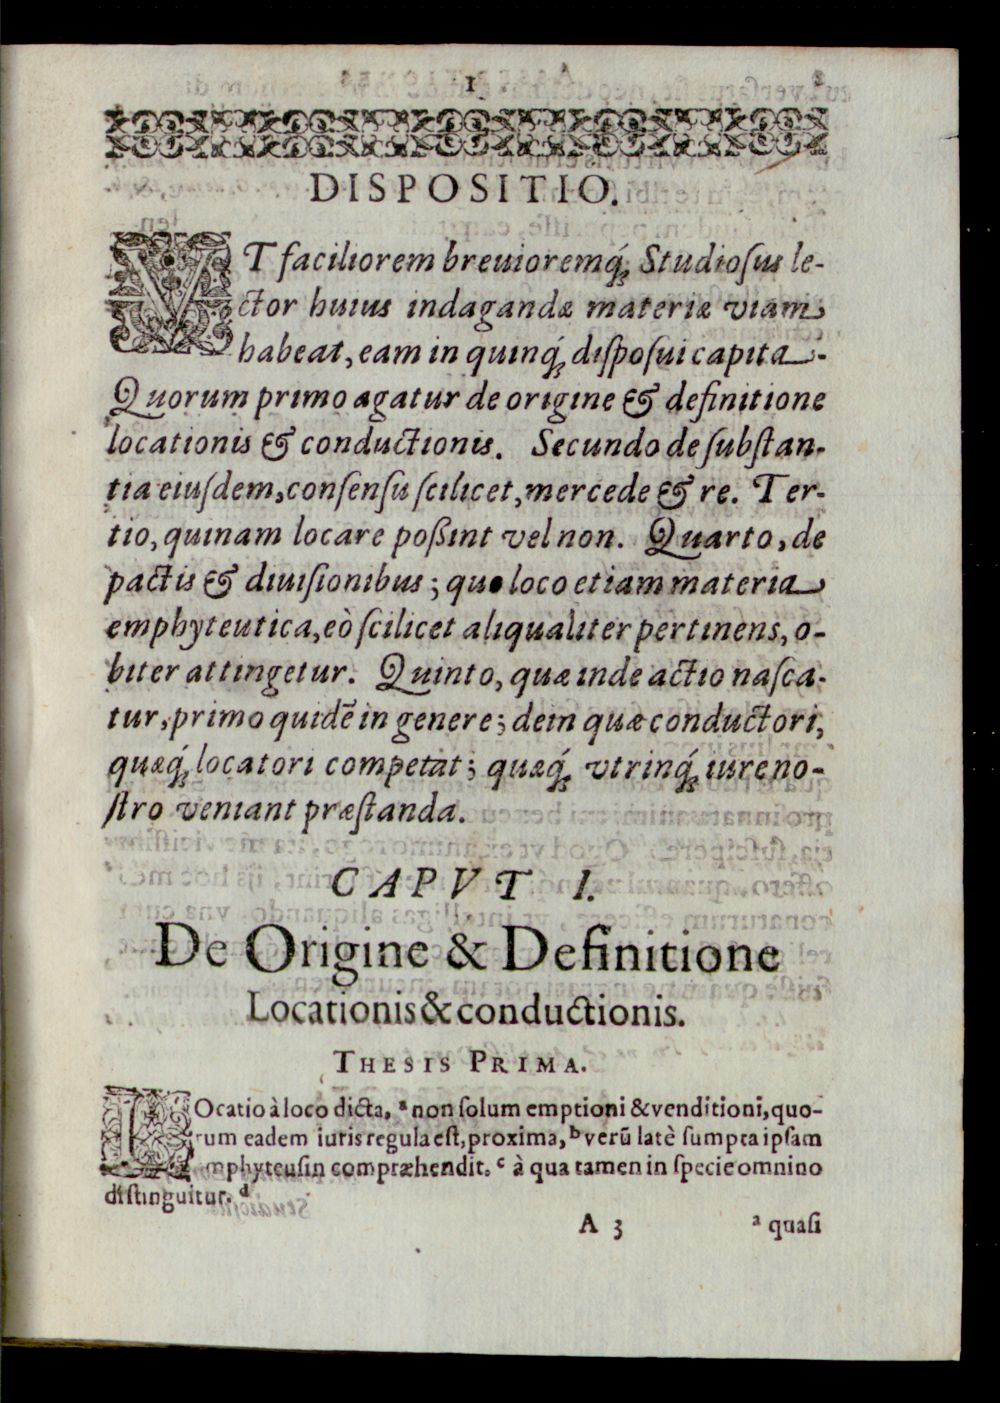 1
DISPOSITIO.
VT faciliorem breuioremq́ue Studiosus le-
ctor huius indagandæ materiæ viam
habeat, eam in quinq́ue disposui capita.
Quorum primo agatur de origine & definitione
locationis & conductionis. Secundo de substan-
tia eiusdem, consensu scilicet, mercede & re. Ter-
tio, quinam locare poßint vel non. Quarto, de
pactis & diuisionibus; quo loco etiam materia
emphyteutica, eò scilicet aliqualiter pertinens, o-
biter attingetur. Quinto, quæ inde actio nasca-
tur, primo quidē in genere; dein quæ conductori,
quæq́ue locatori competat; quæq́ue vtrinq́ue iure no-
stro veniant præstanda.
CAPVT I.
De Origine & Definitione
Locationis & conductionis.
THESIS PRIMA.
LOcatio à loco dicta, ᵃ non solum emptioni & venditioni, quo-
rum eadem iuris regula est, proxima, ᵇ verū latè sumpta ipsam
emphyteusin compræhendit. ᶜ à qua tamen in specie omnino
distinguitur. ᵈ
A 3 ᵃ quasi